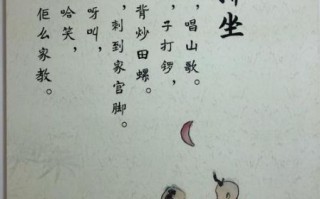 坐
，唱山歌。
，子打锣，
背炒田螺。
，刺到家官脚。
呀叫，
哈笑，
佢么家教。